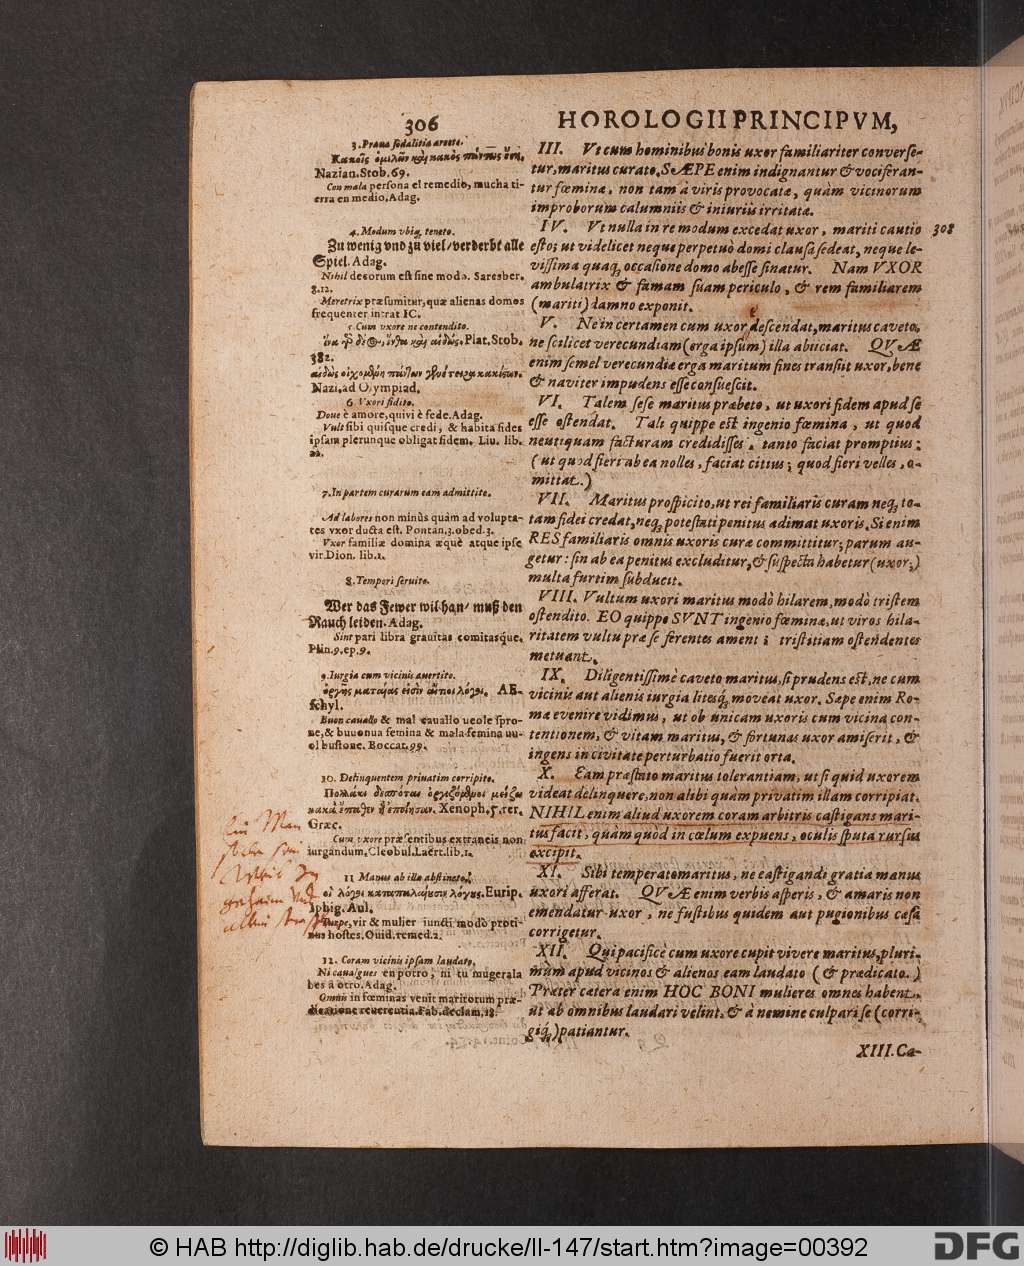 306
HOROLOGII PRINCIPVM,
3. Praua sodalitia arceto.
Nazian. Stob. 69.
Con mala persona el remedio, mucha ti-
erra en medio. Adag.
4. Modum vbiq; teneto.
Zu wenig vnd zu viel/verderbt alle
Spiel. Adag.
Nihil decorum est sine modo. Saresber.
8.12.
Meretrix præsumitur, quæ alienas domos
frequenter intrat IC.
5. Cum vxore ne contendito.
Plat. Stob.
382.
Nazi. ad Olympiad.
6 Vxori fidito.
Doue è amore, quivi è fede. Adag.
Vult sibi quisque credi, & habita fides
ipsam plerunque obligat fidem. Liu. lib.
22.
7. In partem curarum eam admittito.
Ad labores non minùs quàm ad volupta-
tes vxor ducta est. Pontan. 3. obed. 3.
Vxor familiæ domina æquè atque ipse
vir. Dion. lib. 1.
8. Tempori seruito.
Wer das Fewer wil han/ muß den
Rauch leiden. Adag.
Sint pari libra grauitas comitasque.
Plin. 9. ep. 9.
9. Iurgia cum vicinis auertito.
ὀργῆς ματαίας εἰσὶν αἴτιοι λόγοι. AE-
schyl.
Buon cauallo & mal cauallo vuole spro-
ne, & buuonua femina & mala femina vu-
ol bustone. Boccat. 99.
10. Delinquentem priuatim corripito.
Xenoph. 5. rer.
Græc.
Cum vxore præsentibus extraneis non
iurgandum. Cleobul. Laërt. lib. 1.
11 Manus ab illa abstineto.
οἱ λόγοι καταπαλαίουσιν λόγους. Eurip.
Iphig. Aul.
Turpe, vir & mulier iuncti modò proti-
nus hostes. Ouid. remed. 2.
12. Coram vicinis ipsam laudato.
Ni caualgues en potro, ni tu mugerala
bes à otro. Adag.
Omnis in fœminas venit maritorum præ-
dicatione reuerentia. Fab. declam. 18.
III. Vt cum hominibus bonis uxor familiariter converse-
tur, maritus curato. SÆPE enim indignantur & vociferan-
tur fœminæ, non tam à viris provocatæ, quàm vicinorum
improborum calumniis & iniuriis irritatæ.
IV. Vt nulla in re modum excedat uxor, mariti cautio 308
esto; ut videlicet neque perpetuò domi clausa sedeat, neque le-
vissima quaq; occasione domo abesse sinatur. Nam VXOR
ambulatrix & famam suam periculo, & rem familiarem
(mariti) damno exponit.
V. Ne in certamen cum uxore descendat, maritus caveto,
ne scilicet verecundiam (erga ipsum) illa abiiciat. QVÆ
enim semel verecundiæ erga maritum fines transiit uxor, bene
& naviter impudens esse consuescit.
VI. Talem sese maritus præbeto, ut uxori fidem apud se
esse ostendat. Tali quippe est ingenio fœmina, ut quod
neutiquam facturam credidisses, tanto faciat promptius:
(ut quod fieri ab ea nolles, faciat citius; quod fieri velles, o-
mittat.)
VII. Maritus prospicito, ut rei familiaris curam neq; to-
tam fidei credat, neq; potestati penitus adimat uxoris. Si enim
RES familiaris omnis uxoris curæ committitur, parum au-
getur: sin ab ea penitus excluditur, & suspecta habetur (uxor;)
multa furtim subducit.
VIII. Vultum uxori maritus modò hilarem, modò tristem
ostendito. EO quippe SVNT ingenio fœminæ, ut viros hila-
ritatem vultu præ se ferentes ament; tristitiam ostendentes
metuant.
IX. Diligentissimè caveto maritus, si prudens est, ne cum
vicinis aut alienis iurgia litesq; moveat uxor. Sæpe enim Ro-
mæ evenire vidimus, ut ob unicam uxoris cum vicina con-
tentionem, & vitam maritus, & fortunas uxor amiserit, &
ingens in civitate perturbatio fuerit orta.
X. Eam præstato maritus tolerantiam, ut si quid uxorem
videat delinquere, non alibi quàm privatim illam corripiat.
NIHIL enim aliud uxorem coram arbitris castigans mari-
tus facit, quàm quòd in cœlum expuens, oculis sputa rursus
excipit.
XI. Sibi temperato maritus, ne castigandi gratia manus
uxori afferat. QVÆ enim verbis asperis, & amaris non
emendatur uxor, ne fustibus quidem aut pugionibus cæsa
corrigetur.
XII. Qui pacificè cum uxore cupit vivere maritus, pluri-
mùm apud vicinos & alienos eam laudato (& prædicato.)
Præter cætera enim HOC BONI mulieres omnes habent,
ut ab omnibus laudari velint, & à nemine culpari se (corri-
giq;) patiantur.
XIII. Ca-
© HAB http://diglib.hab.de/drucke/ll-147/start.htm?image=00392
DFG